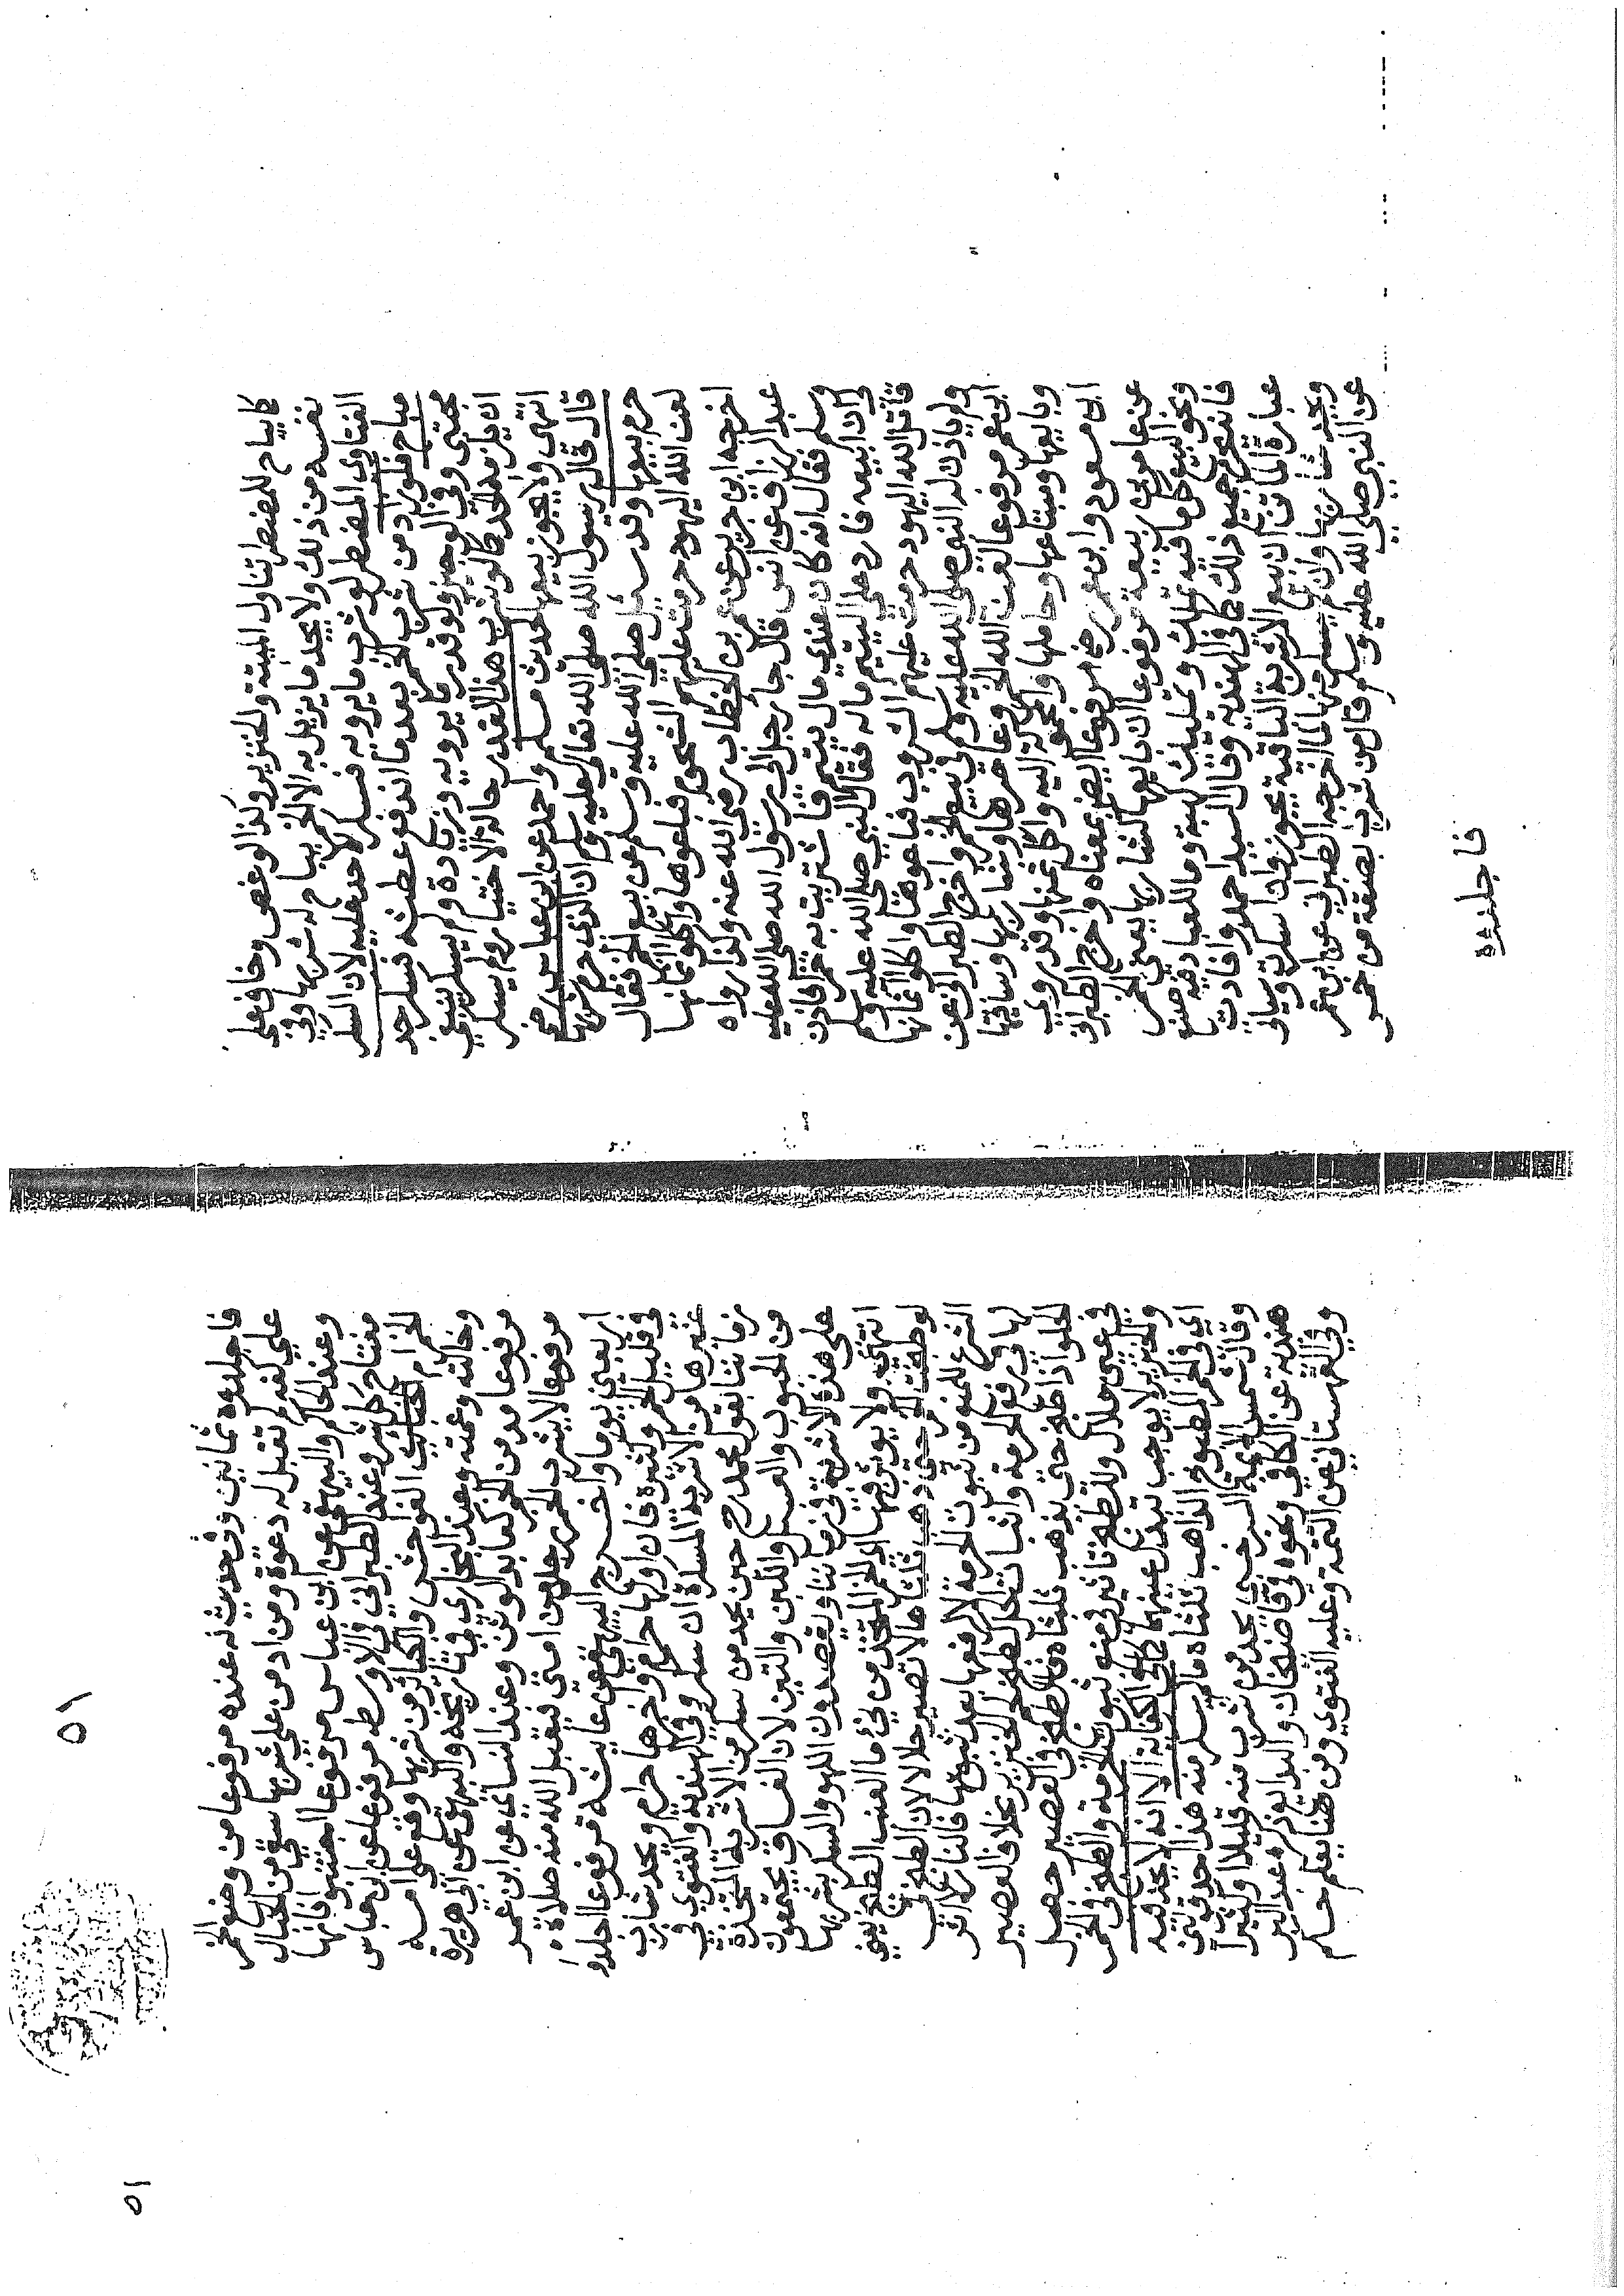 كما يباح للمضطر تناول الميتة والخنزير وكذا لو غص وخاف على
نفسه من ذلك ولا يجد ما يزيل به الا الخمر يباح له شربها وفي
الفتاوى المضطر لو شرب ما يرويه فسكر لا حد عليه لان السكر
مباح فلو زاد من شرب الخمر بعد ما اندفع عطشه فسكر حد
مجتبى وفي الوجيز ولو قدر ما يرويه وزيادة ولم يسكر ينبغي
ان يلزمه الحد كما لو شرب هذا القدر حالة الاختيار ولم يسكر
انتهى ولا يجوز بيعها لحديث مسلم واحمد عن ابن عباس رضي
قال قال رسول الله صلى الله تعالى عليه وسلم ان الذي حرم شربها
حرم بيعها وقد سئل صلى الله عليه وسلم عن بيع الخمر فقال
لعن الله اليهود حرمت عليهم الشحوم فباعوها واكلوا اثمانها
اخرجه ابن جرير عن عمر بن الخطاب رضي الله عنه وكذا رواه
عبد الرزاق عن انس قال جاء رجل الى رسول الله صلى الله عليه
وسلم فقال انه كان عندي مال يتيم فاشتريت به خمرا فاذن
لي ان ابيعه فارد على اليتيم ماله فقال النبي صلى الله عليه وسلم
قاتل الله اليهود حرمت عليهم الثروب فباعوها واكلوا اثمانها
ولم ياذن له النبي صلى الله عليه وسلم في بيع الخمر واخرج الطبراني عن
ابن عمر مرفوعا لعن الله الخمر وعاصرها وشاربها وساقيها
وبايعها ومبتاعها وحاملها والمحمولة اليه واكل ثمنها وقد روي
ابن مسعود وابن عمر رضي مرفوعا ايضا بمعناه واخرج الطبراني
عن عامر بن ربيعة مرفوعا ان بايعها كشاربها يعني الخمر
ونحو البيع كل ما فيه تملك وتمليك كهبة وما للعباد فيه صنع
فانه يحرم جميع ذلك كما في الهندية وقال السيد احمد وافادت
عبارة الماتن ان بيع الاشربة الباقية يجوز وان اسكرت وسياتي
ويحد شاربها وان لم يسكر منها لما اخرجه الطبراني عن ابن عمر
عن النبي صلى الله عليه وسلم قال من شرب بصقة من خمر
فاجلدوه
٥١
٥١
فاجلدوه ثمانين وفي حديث له عنده مرفوعا من وضع الخمر
على كفه لم تقبل له دعوة ومن ادمن على شربها سقي من الخبال
وعند الحاكم والبيهقي عن ابن عباس مرفوعا اجتنبوا الخمر فانها
مفتاح كل شر وعند الطبراني في الاوسط مرفوعا عن ابن عباس
الخمر ام الخبائث الفواحش واكبر الكبائر من شربها وقع على امه
وخالته وعمته وعند البخاري في تاريخه والبيهقي عن ابي هريرة
مرفوعا مدمن الخمر كعابد الوثن وعند النسائي عن ابن عمر
مرفوعا لا يشرب الخمر رجل من امتي فيقبل الله منه صلاة
اربعين يوما واخرج البيهقي عن عايشة مرفوعا اجلدوا
في قليل الخمر وكثيره فان اولها حرام واخرها حرام ويحد شارب
غيرها من الاشربة المسكرة ان سكر وفي الهندية والفتوى في
زماننا بقول محمد رح حين يحد من سكر من الاشربة المتخذة
من الحبوب والعسل واللبن والتين لان الفساق يجتمعون
على هذه الاشربة في زماننا ويقصدون اللهو والسكر بشربها
انتهى ولا يؤثر فيها اي الخمر المتخذ من نيء ماء العنب الطبخ يعني
لو طبخت الخمر حتى ذهب ثلثاها لا تصير حلالا لان الطبخ في
الشرع للمنع من ثبوت الحرمة لا لرفعها بعد ثبوتها فالنار لا اثر
لها في رفع الحرمة واثبات الحل كطبخ لحم الخنزير بخلاف العصير
الحلو اذا طبخ حتى يذهب ثلثاه فالطبخ في العصير حصل
في عين حلال وللطبخ تاثير في منع ثبوت الحرمة والطبخ في الخمر
والخنزير لا يوجب تبدل عينهما كما في الكفاية الا انه لا يحد فيه
اي في الخمر المطبوخ الذاهب ثلثاه ما لم يسكر منه هذا احد قولين
وقال شمس الائمة السرخسي يحد من شرب منه قليلا او كثيرا
هندية عن الكافي ونحوه في قاضيخان والبدايع ذكره عبد البر
وفي القهستاني عن التتمة وعليه الفتوى ومن هنا يعلم حسام